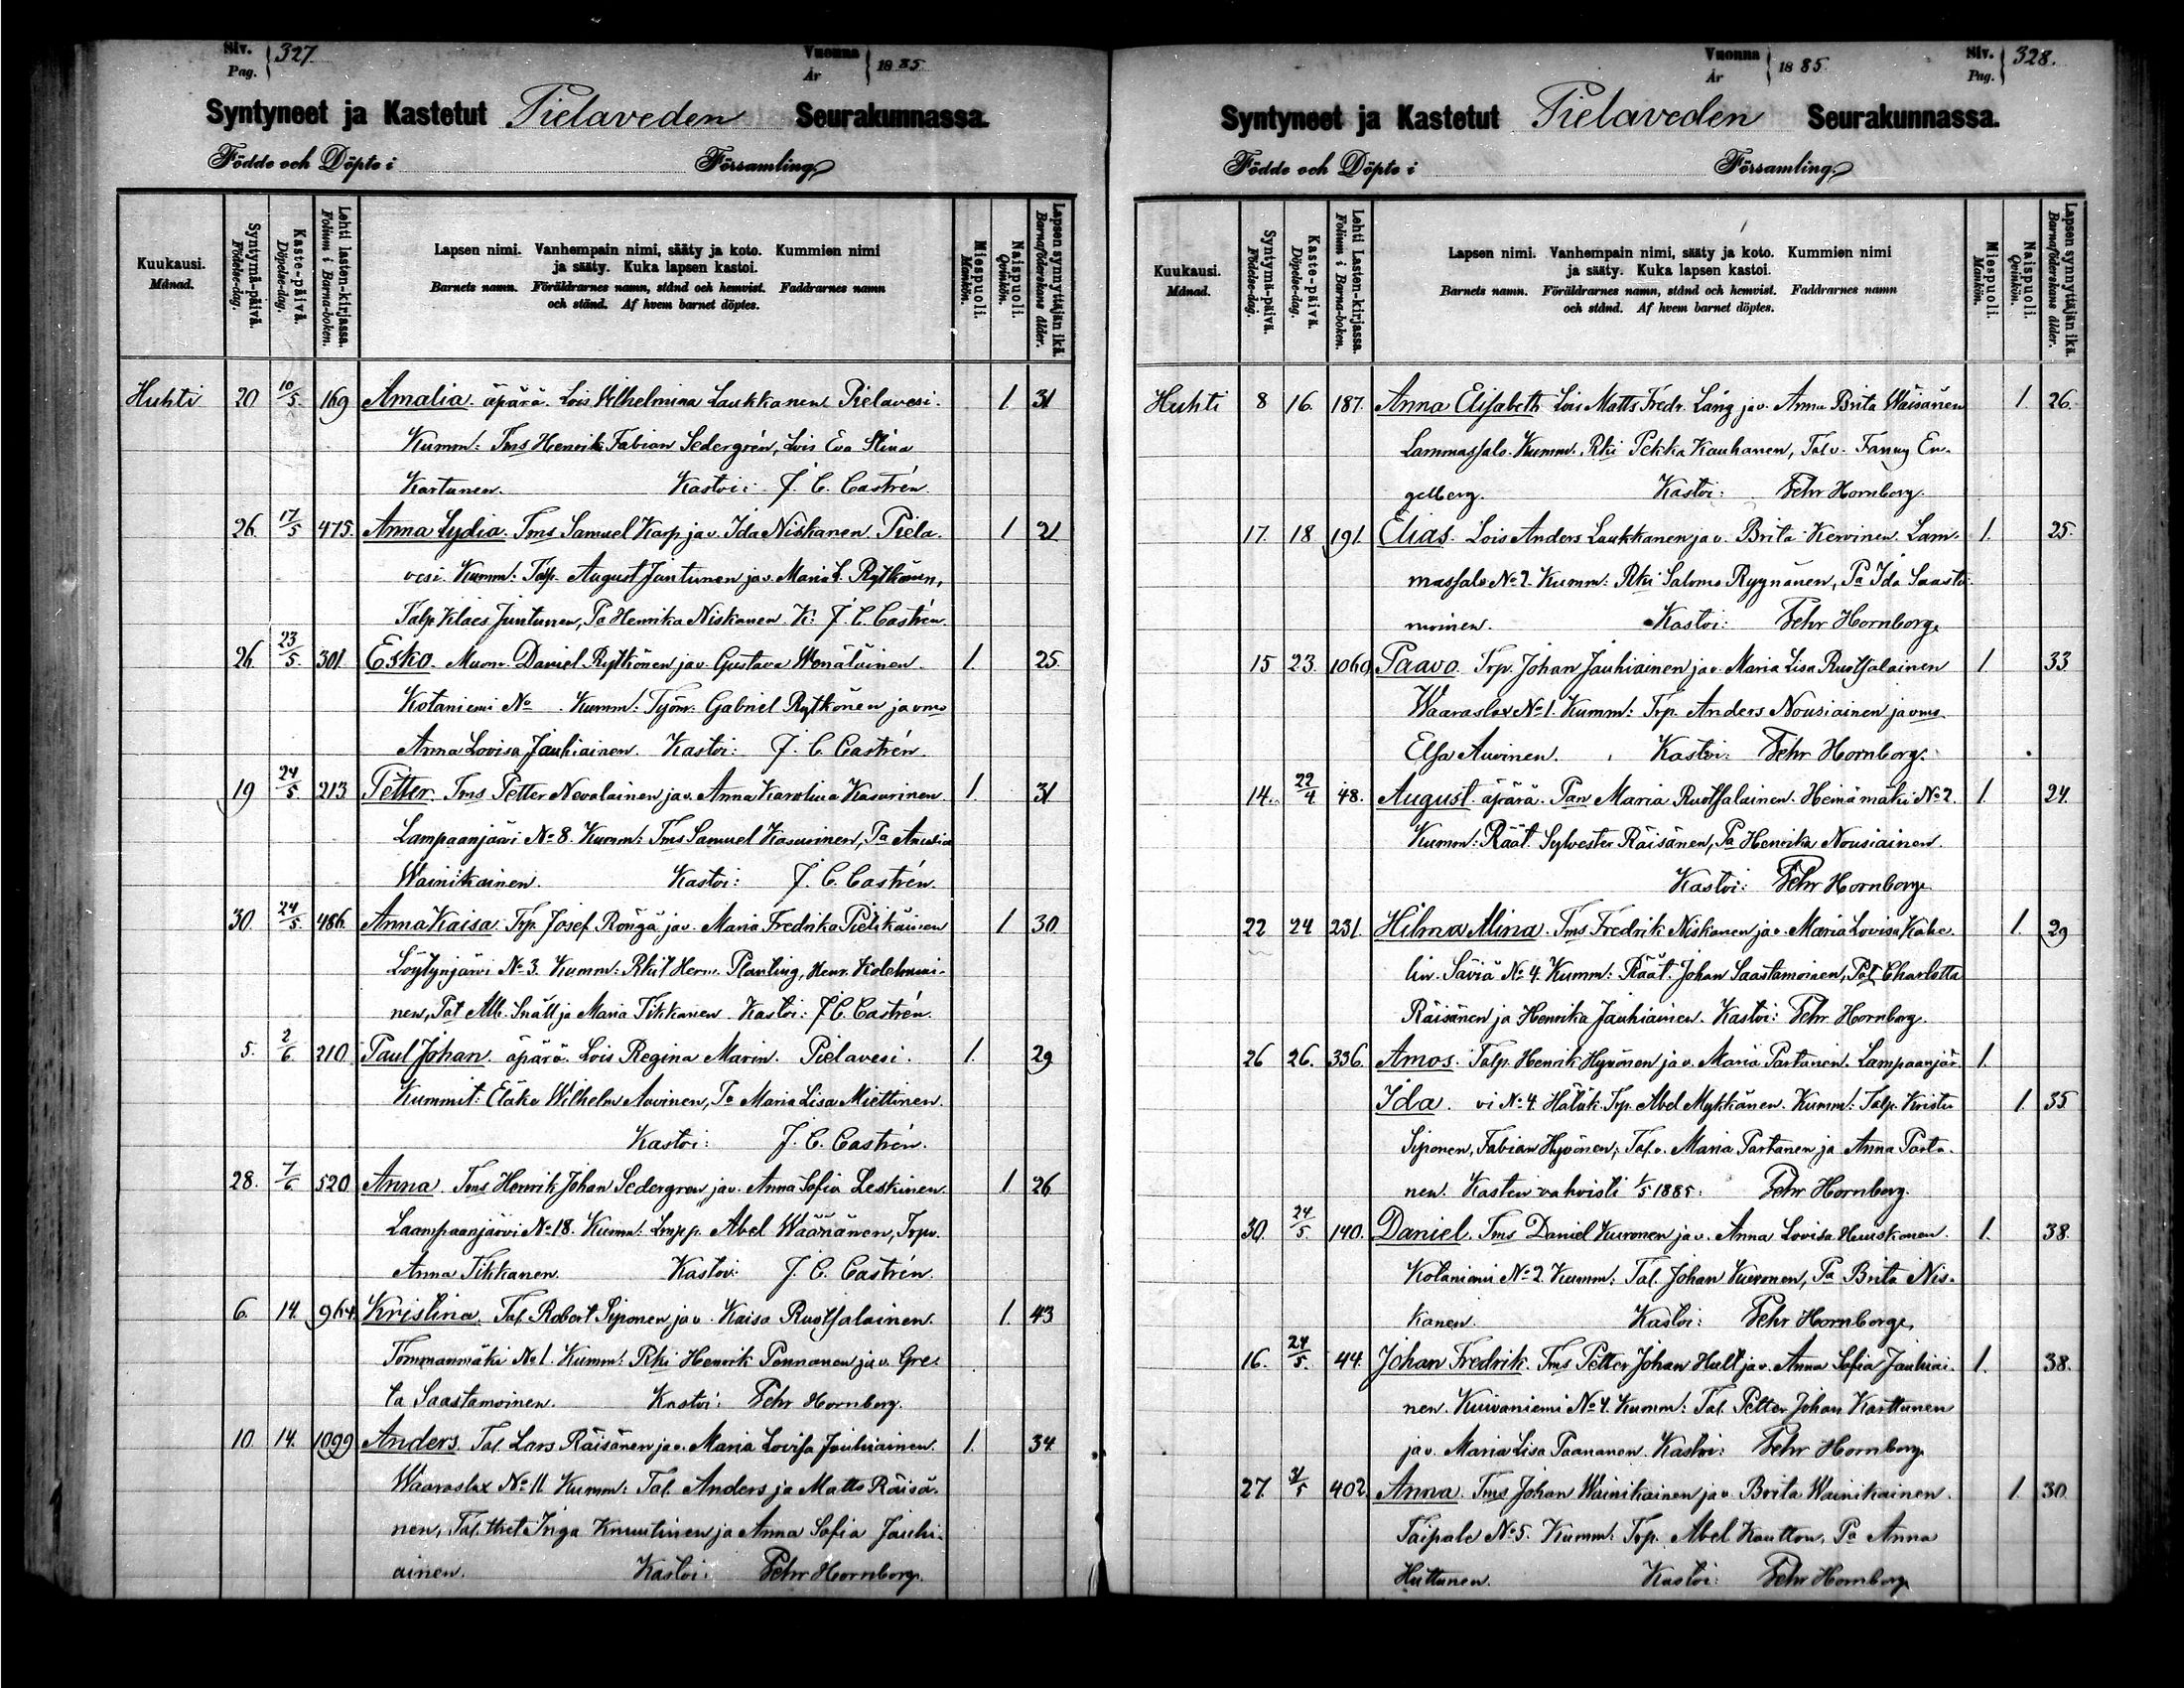 Siv.
Pag. 327.
Vuonna
År 1885.
Syntyneet ja Kastetut Pielaveden Seurakunnassa.
Födde och Döpte i Församling.
Kuukausi.
Månad.
Syntymä-päivä.
Födelse-dag.
Kaste-päivä.
Döpelse-dag.
Lehti lasten-kirjassa.
Folium i Barna-boken.
Lapsen nimi. Vanhempain nimi, sääty ja koto. Kummien nimi
ja sääty. Kuka lapsen kastoi.
Barnets namn. Föräldrarnes namn, stånd och hemvist. Faddrarnes namn
och stånd. Af hvem barnet döptes.
Miespuoli.
Mankön.
Naispuoli.
Qvinkön.
Lapsen synnyttäjän ikä.
Barnaföderskans ålder.
Huhti 20 10/5. 169 Amalia. äpärä. Lois Vilhelmina Laukkanen Pielavesi. 1. 31
Kumm: Tms Henrik Fabian Sedergrén, Lois Eva Stina
Kartunen. Kastoi: J. C. Castrén.
26. 17/5 475. Anna Lydia. Tms Samuel Karp ja v. Ida Niskanen. Piela-
vesi. Kumm: Talp. August Juntunen ja v. Maria L. Rytkönen, 1 21
Talp Klaes Juntunen, Pa Henrika Niskanen. K: J. C. Castrén.
26. 23/5. 301. Esko. Muonr. Daniel Rytkönen ja v. Gustava Wenäläinen. 1. 25.
Kotaniemi No . Kumm: Työm. Gabriel Rytkönen ja vmo
Anna Lovisa Jauhiainen. Kastoi: J. C. Castrén.
19 24/5. 213 Petter. Tms Petter Nevalainen ja v. Anna Karolina Kasurinen. 1. 31
Lampaanjärvi No 8. Kumm: Tms Samuel Kasurinen, Pa Amalia
Wainikainen. Kastoi: J. C. Castrén.
30. 24/5. 486. Anna Kaisa. Trp. Josef Ronga ja v. Maria Fredrika Pielikäinen 1 30
Löytynjärvi No 3. Kumm: Rkit Herm. Planting, Henr. Kolehmai-
nen, Pat Alb. Snäll ja Maria Tikkanen. Kastoi: J. C. Castrén.
5. 2/6 210 Paul Johan. äpärä. Lois Regina Marin. Pielavesi. 1. 29
Kummit: Eläke Wilhelm Auvinen, Pa Maria Lisa Miettinen.
Kastoi: J. C. Castrén.
28. 7/6. 520 Anna. Tms Henrik Johan Sedergren ja v. Anna Sofia Leskinen. 1. 26
Laampaanjärvi No 18. Kumm: Lmpp. Abel Wäänänen, Trpv.
Anna Tikkanen. Kastoi: J. C. Castrén.
6. 14. 964. Kristina. Tal. Robert Siponen ja v. Kaisa Ruotsalainen. 1. 43
Tommanmäki No 1. Kumm: Rki Henrik Pennanen ja v. Gre-
ta Saastamoinen. Kastoi: Fehr Hornborg.
10. 14. 1099 Anders. Tal. Lars Räisänen ja v. Maria Lovisa Jauhiainen. 1. 34.
Waaraslax No 11. Kumm: Tal. Anders ja Matts Räisä-
nen, Tal. thet Inga Knuutinen ja Anna Sofia Jauhi-
ainen. Kastoi: Fehr Hornborg.
Vuonna
År 1885.
Siv.
Pag. 328.
Syntyneet ja Kastetut Pielaveden Seurakunnassa.
Födde och Döpte i Församling.
Kuukausi.
Månad.
Syntymä-päivä.
Födelse-dag.
Kaste-päivä.
Döpelse-dag.
Lehti Lasten-kirjassa.
Folium i Barna-boken.
Lapsen nimi. Vanhempain nimi, sääty ja koto. Kummien nimi
ja sääty. Kuka lapsen kastoi.
Barnets namn. Föräldrarnes namn, stånd och hemvist. Faddrarnes namn
och stånd. Af hvem barnet döptes.
Miespuoli.
Mankön.
Naispuoli.
Qvinkön.
Lapsen synnyttäjän ikä.
Barnaföderskans ålder.
Huhti 8 16. 187. Anna Elisabeth Lois Matts Fredr. Lång ja v. Anna Brita Wäisänen 1. 26.
Lammassalo. Kumm. Rki Pekka Kauhanen, Tal v. Fanny En-
gelberg. Kastoi: Fehr Hornborg.
17. 18. 191. Elias. Lois Anders Laukkanen ja v. Brita Kervinen. Lam- 1. 25.
massalo No 2. Kumm: Rki Salomo Ryynänen, Pa Ida Saasta-
moinen. Kastoi: Fehr Hornborg.
15 23. 1069 Paavo. Trp. Johan Jauhiainen ja v. Maria Lisa Ruotsalainen 1. 33
Waaraslax No 1. Kumm: Trp. Anders Nousiainen ja vmo
Elsa Auvinen. Kastoi: Fehr Hornborg.
14. 22/4 48. August. äpärä. Pan Maria Ruotsalainen. Heinämäki No 2. 1. 24.
Kumm: Räät. Sylvester Räisänen, Pa Henrika Nousiainen.
Kastoi: Fehr Hornborg.
22 24 231. Hilma Mina. Tms Fredrik Niskanen ja v. Maria Lovisa Kähe- 1. 29
lin. Säviä No 4. Kumm: Räät. Johan Saastamoinen, Pat Charlotta
Räisänen ja Henrika Jauhiainen. Kastoi: Fehr Hornborg.
26 26. 336. Amos. Talp. Henrik Hyvönen ja v. Maria Partanen. Lampaanjär- 1.
Ida. vi No 4. Hätäk. Trp. Abel Mykkänen. Kumm: Talp. Krister 1. 35
Siponen, Fabian Hyvönen, Tal. v. Maria Partanen ja Anna Parta-
nen. Kasteen vahvisti 1/5 1885: Fehr Hornborg.
30. 24/5 140. Daniel. Tms Daniel Kuronen ja v. Anna Lovisa Huuskonen. 1. 38.
Kotaniemi No 2. Kumm: Tal. Johan Kuronen, Pa Brita Nis-
kanen. Kastoi: Fehr Hornborg.
16. 24/5. 44 Johan Fredrik. Tms Petter Johan Hult ja v. Anna Sofia Jauhiai- 1. 38.
nen. Kuivaniemi No 4. Kumm: Tal. Petter Johan Karttunen
ja v. Maria Lisa Paananen. Kastoi: Fehr Hornborg
27. 31/5 402 Anna. Tms Johan Wainikainen ja v. Brita Wainikainen. 1. 30.
Taipale No 5. Kumm: Trp. Abel Kautton, Pa Anna
Huttunen. Kastoi: Fehr Hornborg